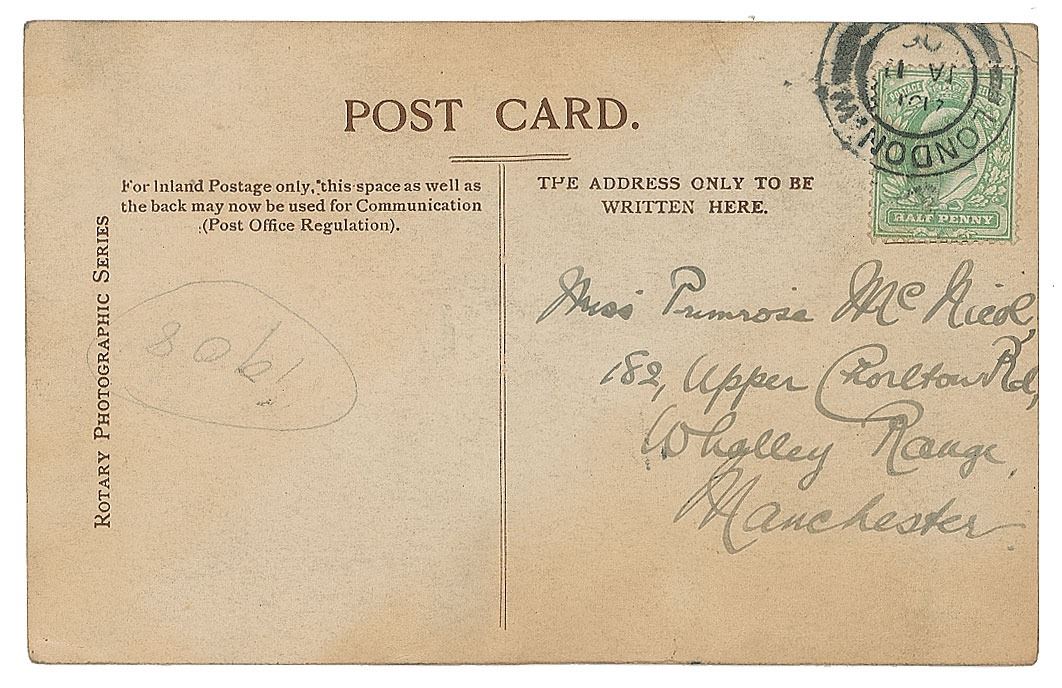 POST CARD.
For Inland Postage only, this space as well as
the back may now be used for Communication
(Post Office Regulation).
ROTARY PHOTOGRAPHIC SERIES
1908
THE ADDRESS ONLY TO BE
WRITTEN HERE.
LONDON. W
JA 11
POSTAGE
HALF PENNY
Miss Primrose McNicol,
182, Upper Chorlton Rd,
Whalley Range,
Manchester.